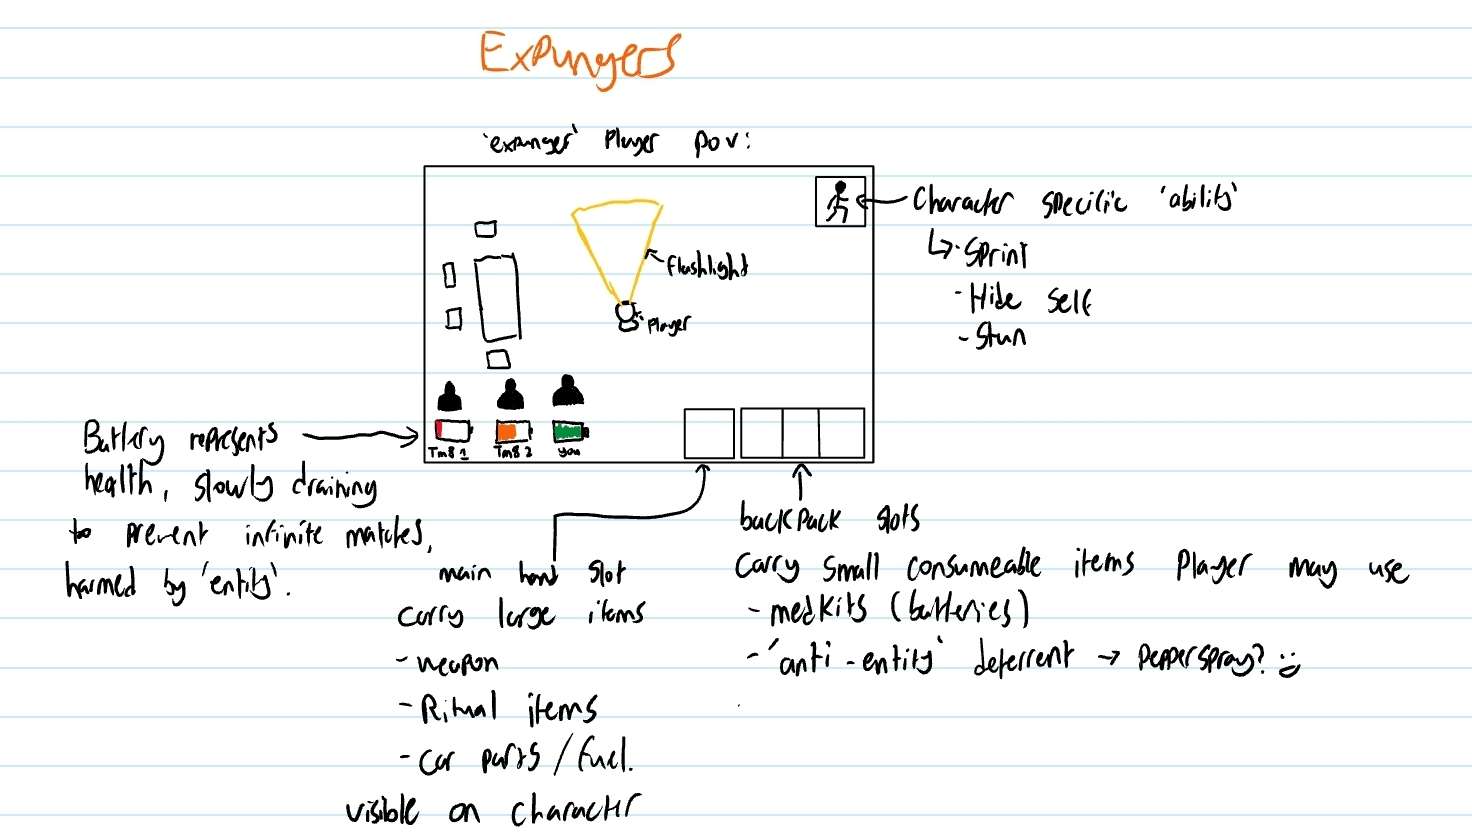 Expungers
'expunger' Player pov:
Character specific 'ability'
↳ · Sprint
- Hide self
- Stun
Flashlight
Player
Tm8 1
Tm8 2
you
Battery represents
health, slowly draining
to prevent infinite matches,
harmed by 'entity'.
main hand slot
carry large items
- weapon
- Ritual items
- Car parts / fuel.
visible on character
backpack slots
Carry small consumeable items Player may use
- medkits (batteries)
- 'anti-entity' deterrent → Pepperspray? :)